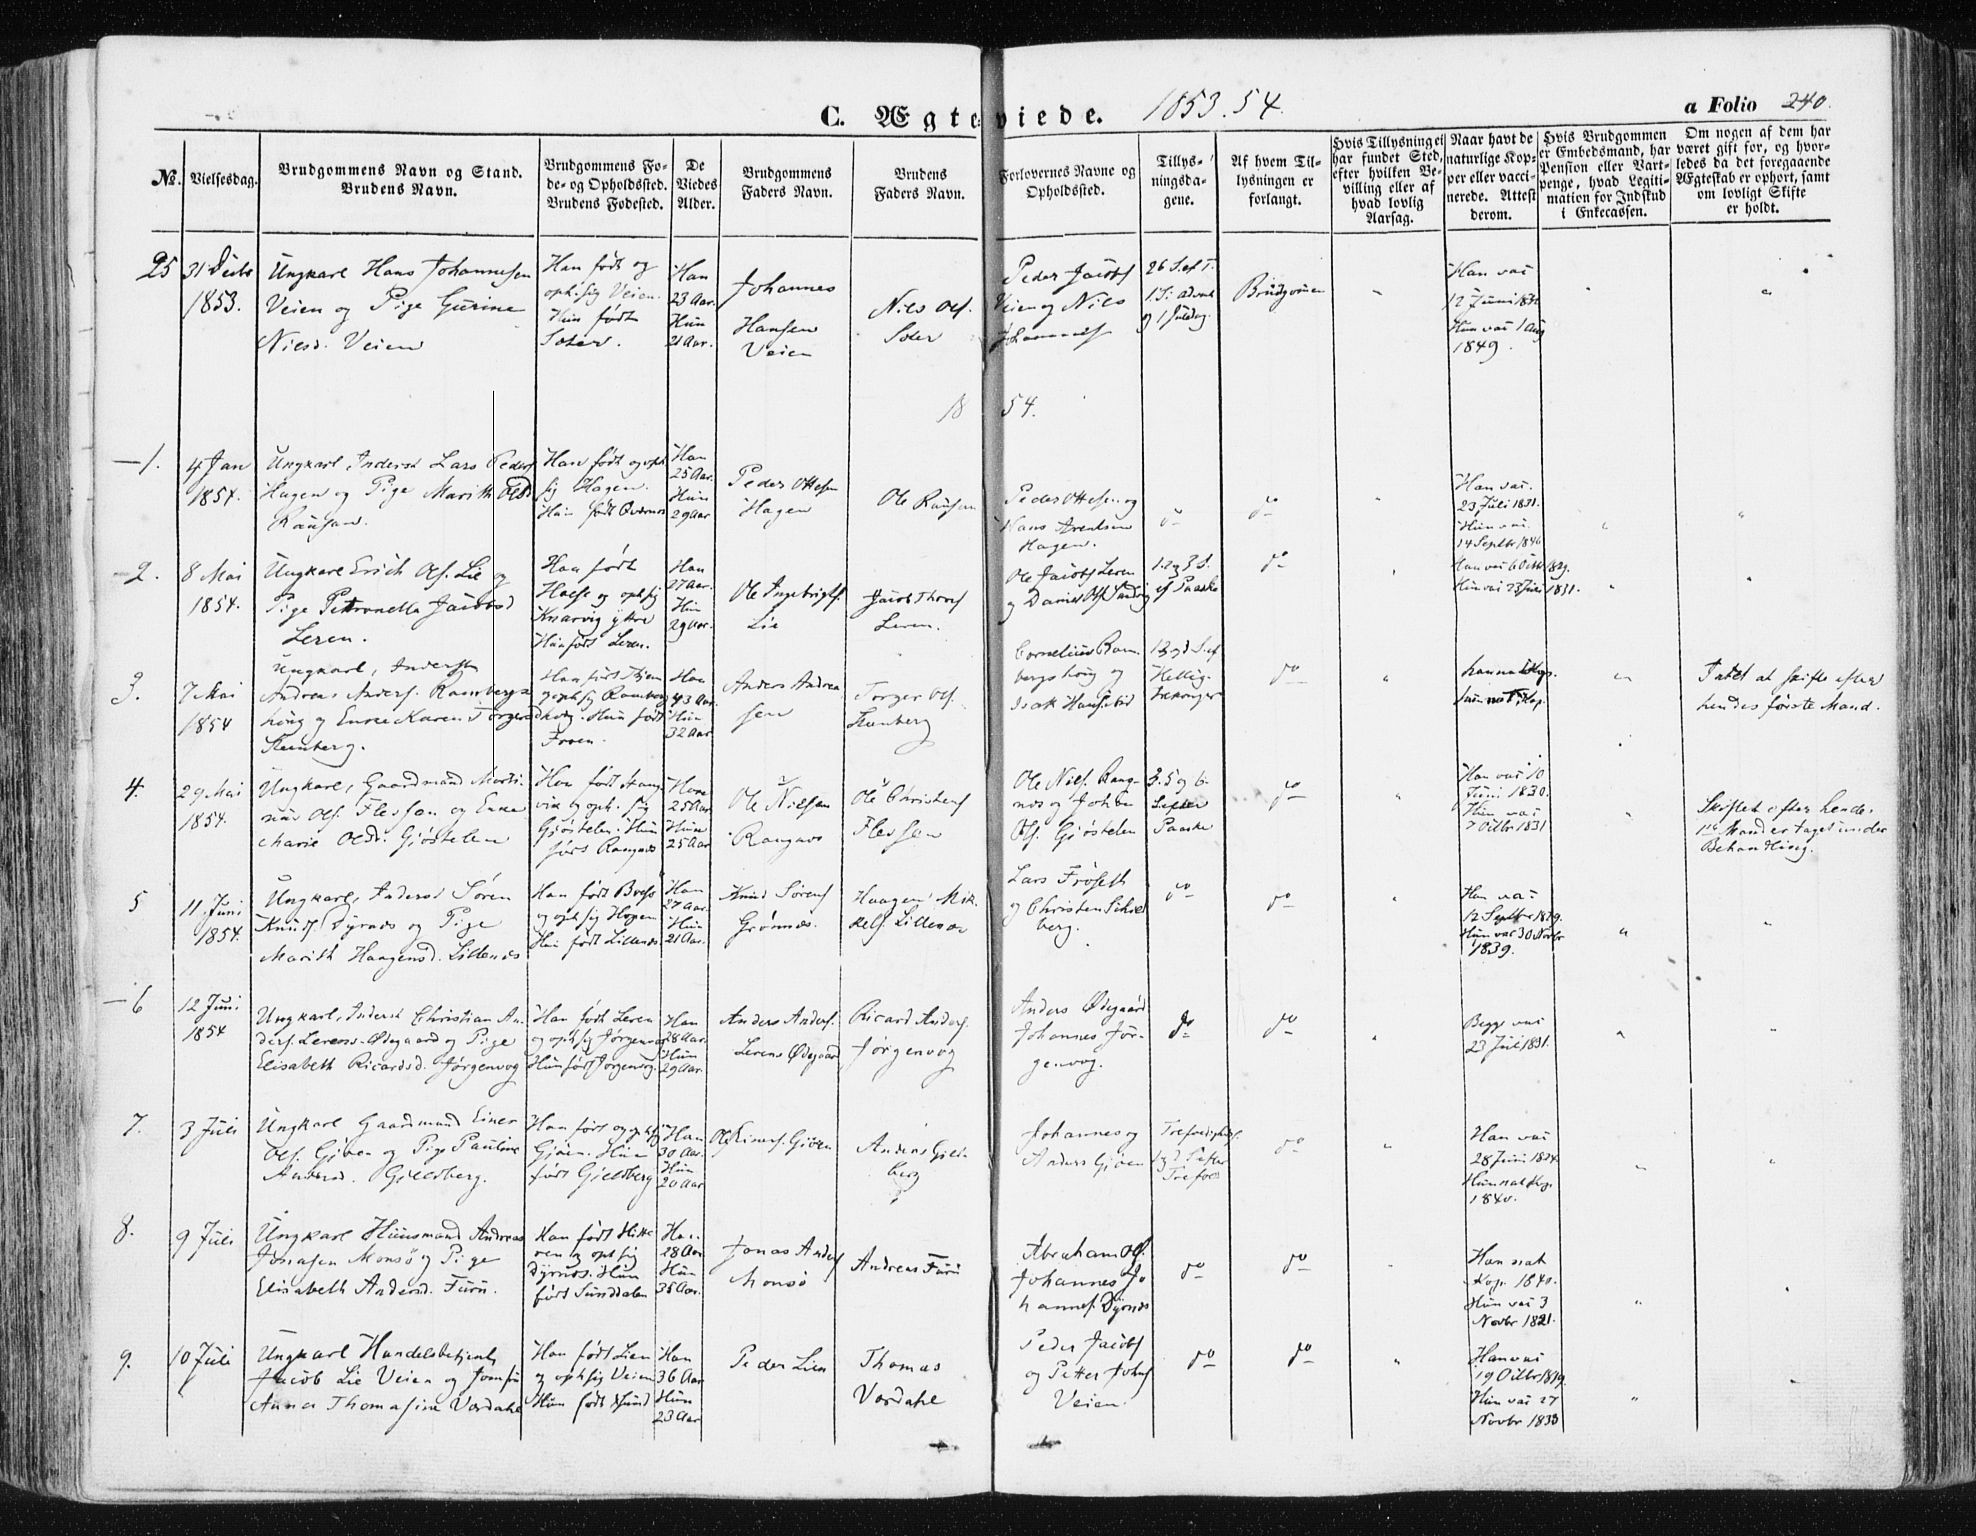 C. Ægteviede. 1853.54. a Folio 240.
No.
Vielsesdag.
Brudgommens Navn og Stand.
Brudens Navn.
Brudgommens Fø-
de- og Opholdssted.
Brudens Fødested.
De
Viedes
Alder.
Brudgommens
Faders Navn.
Brudens
Faders Navn.
Forlovernes Navne og
Opholdssted.
Tillys-
ningsda-
gene.
Af hvem Til-
lysningen er
forlangt.
Hvis Tillysning ei
har fundet Sted,
efter hvilken Be-
villing eller af
hvad lovlig
Aarsag.
Naar havt de
naturlige Kop-
per eller vacci-
nerede. Attest
derom.
Hvis Brudgommen
er Embedsmand, har
Pension eller Vart-
penge, hvad Legiti-
mation for Indskud
i Enkecassen.
Om nogen af dem har
været gift før, og hvor-
ledes da det foregaaende
Ægteskab er ophørt, samt
om lovligt Skifte
er holdt.
25
31 Decbr
1853.
Ungkarl Hans Johannesen
Veien og Pige Gurine
Nilsd. Veien
Han født og
oph. sig Veien.
Hun født
Soler.
Han
23 Aar.
Hun
21 Aar.
Johannes
Hansen
Veien
Nils Ols.
Soler
Peder Jacobs
Veien og Nils
Johannes
26 S. ef T.
1. S. i Advent
og 1 Juledag.
Brudgomen
Han vac
12 Juni 1831
Hun vac 1 Aug
1849.
1854.
1.
4 Jan
1854.
Ungkarl, Inderst Lars Peders
Hagen og Pige Marith Olsd
Rausan.
Han født og oph
sig Hagen.
Hun født Qvernes
Han
25 Aar.
Hun
29 Aar
Peder Ottesen
Hagen
Ole Rausan
Peder Ottesen og
Hans Arentsen
Hagen.
do
do
Han vac.
23 Juli 1831.
Hun vac.
14 Septbr 1846
2.
8 Mai
1854.
Ungkarl Erich Ols. Lie og
Pige Petronella Jacobsd
Leren.
Han født
Halse og oph sig
Knarvig ytre
Hun født Leren.
Han
27 Aar.
Hun
29 Aar.
Ole Ingebrigts
Lie
Jacob Thores
Leren.
Ole Jacobs Leren
og Daniel Ols. Sandvig
1. 2 og 3 S.
ef Paaske
do
Han vac 6 Octbr 1829.
Hun vac 23 Juli 1831.
3.
7 Mai
1854
Ungkarl, Inderst
Andreas Anders. Rambergs
houg og Enke Karen Torgersd
Stenberg.
Han
43 Aar.
Hun
32 Aar
Anders Andrea
sen
Torger Ols.
Stenberg
Cornelius Ram
bergshoug og
Isak
Hellig
trekonger
do
hun nat. Kop.
Ladet at skifte efter
hendes første Mand.
4.
29 Mai
1854.
Ungkarl, Gaardmand Marti-
nus Ols. Flessan og Enke
Marie Olsd. Gjøstelen
Han født Stang
vik og oph. sig
Gjøstelen. Hun
født Rangnes
Han
25 Aar
Hun
25 Aar
Ole Nilsen
Rangnes
Ole Christens
Flessan
Ole Nils. Rang-
nes og Johan
Ols. Gjøstelen
3. 5 og 6.
S. efter
Paaske
do
Han vac 10
Juni 1830.
Hun vac
7 Octbr 1831
Skiftet efter hendes
1ste Mand er taget under
Behandling.
5
11 Juni
1854.
Ungkarl, Inderst Søren
Knuds. Dyrnes og Pige
Marith Haagensd. Lillenes
Han født
og oph sig Hopen
Hun født Lillenes
Han
27 Aar.
Hun
21 Aar.
Knud Sørens
Grønnes.
Haagen Mik-
kels. Lillenes
Lars Frøseth
og Christen Schie
berg.
do
do
Han vac
12 Septbr 1829.
Hun vac 30 Novbr
1839.
6
12 Juni
1854
Ungkarl, Inderst Christian An-
ders. Lerens-Ødegaard og Pige
Elisabeth Ricardsd. Jørgenvog
Han født Leren
og oph sig Jørgenvog
Hun født Jørgenvog.
Han
28 Aar.
Hun
29 Aar.
Anders Anders.
Lerens Ødegaard
Ricard Anders.
Jørgenvog
Anders Ødegaard
Johannes Jør-
genvog.
do
do
Begge vac
23 Juli 1831.
7.
3 Juli
Ungkarl Gaardmand Einer
Ols. Gjøen og Pige Pauline
Andersd. Gjeldberg.
Han født og oph sig
Gjøen. Hun
født Gjeldberg
Han
30 Aar.
Hun
20 Aar
Ole Einers. Gjøen
Anders Gjeld-
berg
Johannes og
Anders Gjøen
Trefoldighedsf.
1 og 2 S. efter
Trefold
do
Han vac
28 Juni 1824.
Hun nat Kop.
1840.
8.
9 Juli
Ungkarl Huusmand Andreas
Jonasen Monsø og Pige
Elisabeth Andersd. Furu.
Han født Hitte
ren og oph sig
Dyrnes. Hun
født Sunddalen
Han
28 Aar
Hun
35 Aar.
Jonas Anders
Monsø
Andreas Furu
Abraham Ols.
Johannes Jo
hannes. Dyrnes
do
do
Han nat
Kop. 1840.
Hun vac 3
Novbr 1821.
9.
10 Juli
Ungkarl Handelsbetjent
Jacob Lie Veien og Jomfru
Anna Thomasine Værdahl
Han født Lien
og oph sig Veien
Hun født
Han
36 Aar
Hun
23 Aar
Peder Lien
Thomas
Værdahl
Peder Jacobs
og Petter Johs
Veien.
do
do
Han vac
19 Octbr 1819.
Hun vac 27
Novbr 1833